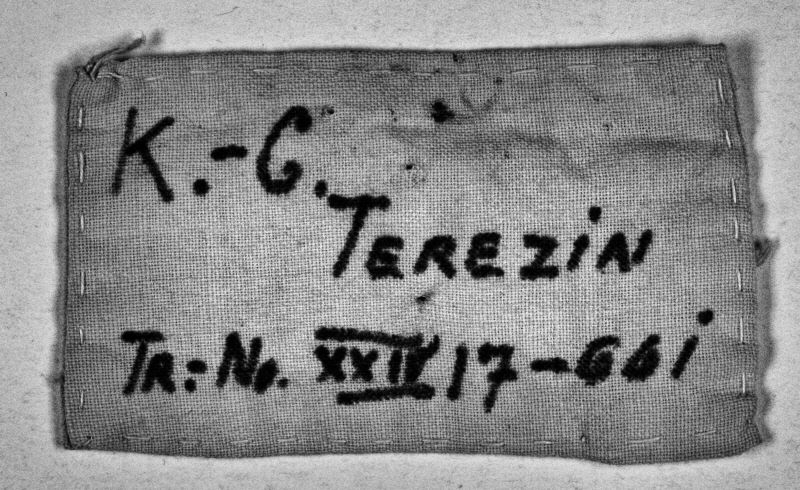 K.-C.
TEREZiN
TR.-No. XXIV/17-661